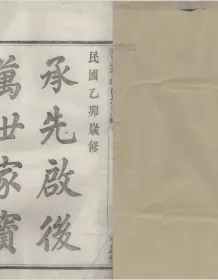 民國乙卯歲修
承先啟後
萬世家寶